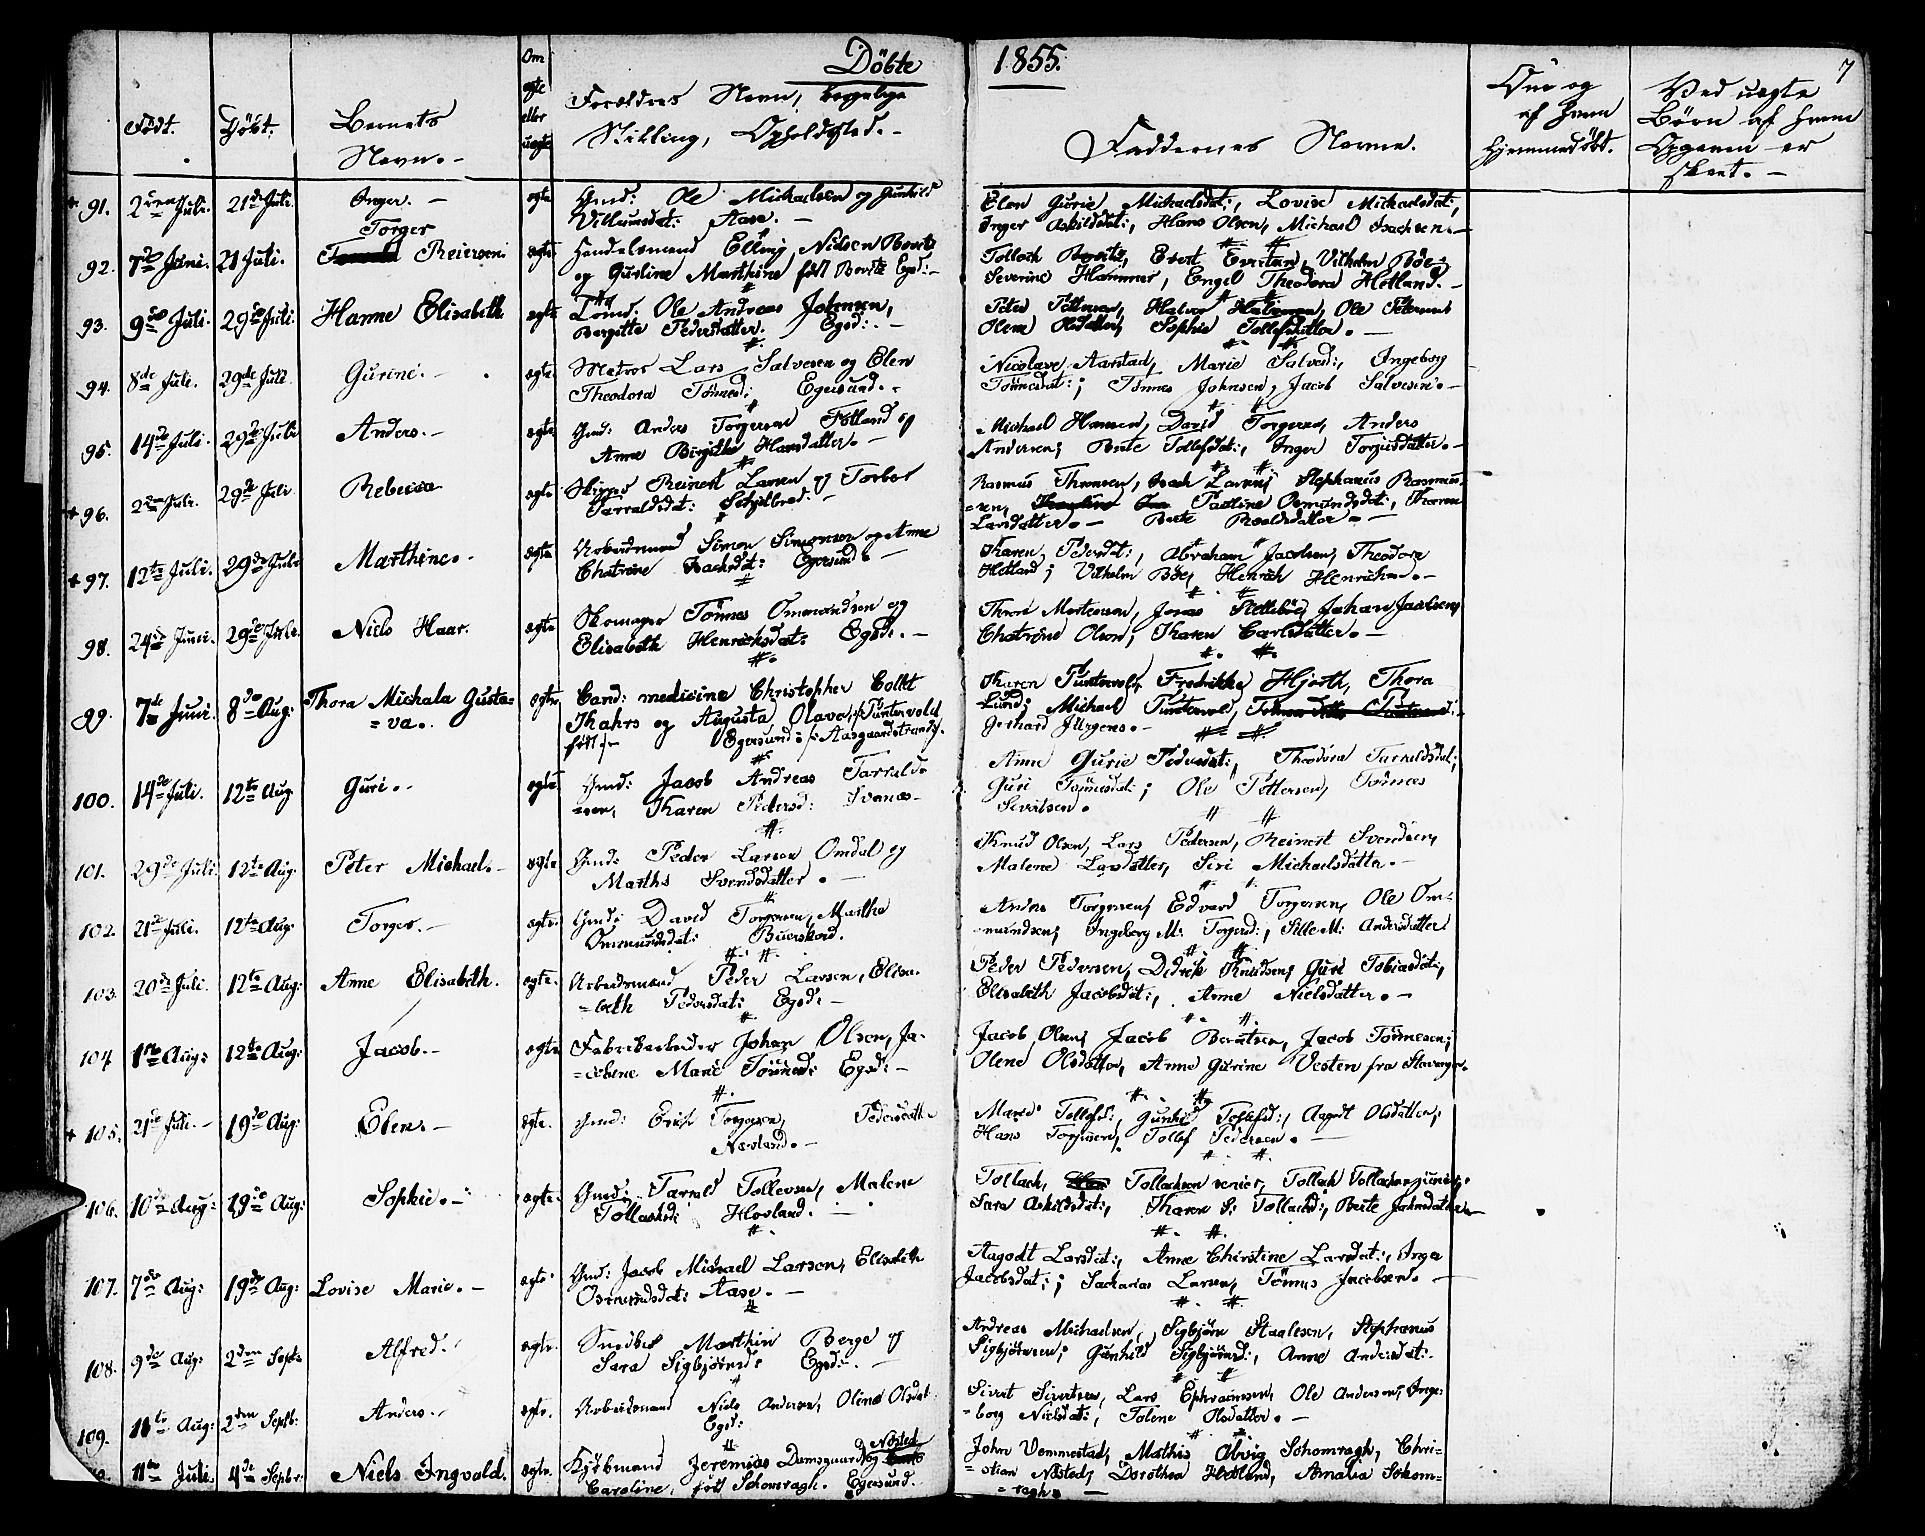 Döbte 1855. 7
Födt. Döbt. Barnets Navn.- Om egte eller uegte Forældres Navn, borgerlige Stilling, Opholdssted.- Faddernes Navne. Naar og af hvem hjemmedöbt. Ved uegte Börn af hvem Opgaven er skeet.-
+ 91. 2den Juli. 21de Juli. Inger.- egte Gmd: Ole Michaelsen og Gunhild
Vilhumsdat: Aase.-
Elen Gurie Michaelsdat:, Lovise Michaelsdat:,
Inger Askildsdat:, Hans Olsen, Michael Isachsen.-
92. 7de Juni. 21 Juli. Torger Reiersen egte Handelsmand Elling Nielsen Bovitz
og Gurline Marthine född Bovitz Egsd:-
Tollach Bovitz, Evert Evertsen, Vilhelm Böe,
Severine Hammer, Engel Theodora Hetland.-
93. 9de Juli. 29de Juli. Hanne Elisabeth egte Lomd: Ole Andreas Johnsen,
Bergitte Pedersdatter. Egsd:.-
Peter Pettersen, Halvor Halvorsen, Ole Petersens
Olene Olsdatter, Sophie Tollefsdatter.-
94. 8de Juli. 29de Juli. Gurine.- egte. Matros Lars Salvesen og Elen
Theodora Tönnesd: Egersund.-
Nicolave Aarstad, Marie Salvesd:, Ingeborg
Tönnesdat:; Tönnes Johnsen, Jacob Salvesen.-
95. 14de Juli. 29de Juli Anders.- egte Gmd: Anders Torgersen Fotland og
Anne Birgitte Hansdatter.-
Michael Hansen, David Torgersen, Anders
Andersen; Berte Tollefsdat:, Inger Torgersdatter.-
+ 96. 2den Juli. 29de Juli Rebecca egte Skipper Reinert Larsen og Torbor
Tarraldsdat:
Rasmus Thomsen, Isach Larsen, Stephanus Rasmus-
=sen, Pauline Osmundsdat:, Thoren
Larsdatter.- Berte Roaldsdatter.-
+ 97. 12te Juli. 29de Juli Marthine.- egte Arbeidsmand Simon Simonsen og Anne
Chatrine Isachsdat: Egersund.-
Karen Pedersdat:, Abraham Jacobsen, Theodore
Hetland; Vilhelm Böe, Henrich Henrichsen.-
98. 24de Juni. 29de Juli. Niels Haar. egte Skomager Tönnes Ommundsen og
Elisabeth Henrichsdat: Egsd:.-
Thore Mortensen, Jonas Stelleböe, Johan Jacobsen,
Chatrine Olsen, Karen Carlsdatter.-
99. 7de Juni. 8de Aug: Thora Michala Gusta-
=va.. egte Cand: medicine Christopher Collet
Kahrs og Augusta Olava f: Puntervold
född.- Egersund:/: Aasgaardstrand/.
Karen Puntervold, Fredrikke Hjorth, Thora
Lund; Michael Puntervold,
Gerhard Jürgens.-
100. 14de Juli. 12te Aug Guri.- egte Gmd: Jacob Andreas Tarrald-
=sen, Karen Pedersd: Svanes-
Anne Gurie Pedersdat:, Theodora Tarraldsdat:,
Guri Tönnesdat:; Ole Pettersen, Tönnes
Sivertsen.
101. 29de Juli 12te Aug: Peter Michael.- egte Gmd: Peder Larsen Omdal og
Marthe Svendsdatter.-
Knud Olsen, Lars Pedersen, Reinert Svendsen,
Malene Larsdatter, Siri Michaelsdatter.-
102. 21de Juli. 12te Aug: Torger.- egte Gmd: David Torgersen, Marthe
Ommundsdat: Buerskard.
Anders Torgersen, Edvard Torgersen, Ole Om-
mundsen; Ingeborg M: Torgersd:, Sille M: Andersdatter
103. 20de Juli. 12te Aug: Anne Elisabeth. egte. Arbeidsmand Peder Larsen, Elisa-
=beth Pedersdat: Egsd:-
Peder Pedersen, Didrik Knudsen; Guri Tobiasdat:,
Elisabeth Jacobsdat:, Anne Nielsdatter.-
104 1ste Aug: 12te Aug: Jacob.- egte Fabrikarbeider Johan Olsen, Ja-
=cobine Marie Tönnesd: Egsd:-
Jacob Olsen, Jacob Berntsen, Jacob Tönnesen;
Olene Olsdatter, Anne Gurine Vesten fra Stavanger.
+ 105. 21de Juli.- 19de Aug: Elen.- egte. Gmd: Erich Torgersen, Pedersdatt:
Næsland.-
Maren Tollefsd:, Gunhild Tollefsd:, Aagodt Olsdatter;
Hans Torgersen, Tollef Pedersen.-
106. 10de Aug: 19de Aug: Sophie.- egte. Gmd: Tarrald Tollevsen, Malene
Tollachsd: Hovland.-
Tollach Tollachsen senior, Tollach Tollachsen junior,
Sara Askildsdat:, Karen S: Tollachsd:, Berte Johnsdatter.-
107. 7de Aug: 19de Aug: Lovise Marie.- egte Gmd: Jacob Michael Larsen, Elisabeth
Osmundsdat: Aase.-
Aagodt Larsdat:, Anne Christine Larsdat:, Inger
Jacobsdat:; Sacharias Larsen, Tönnes Jacobsen.-
108. 9de Aug: 2den Septb: Alfred. egte. Snedker Marthin Berge og
Sara Sigbjörnsd: Egsd:.-
Andreas Michaelsen, Sigbjörn Staalesen, Stephanus
Sigbjörnsen; Gunhild Sigbjörnsd:, Anne Andersdat:
109. 11te Aug: 2den Septb: Anders. egte. Arbeidsmand Niels Andersen, Oline Olsdat
Egsd:
Sivert Sivertsen, Lars Ephraimsen, Ole Andersen; Inge-
=borg Nielsdat:, Tolene Olsdatter.-
11te Juli. 4de Septbr: Niels Ingvald. egte. Kjöbmand Jeremias Damsgaard og Nösted
Caroline, född Schomragh. Egersund.
John Vemmestad, Mathis Schomragh, Chri-
=stian Nösted, Dorothea Hetland, Amalia Schom-
=ragh.-